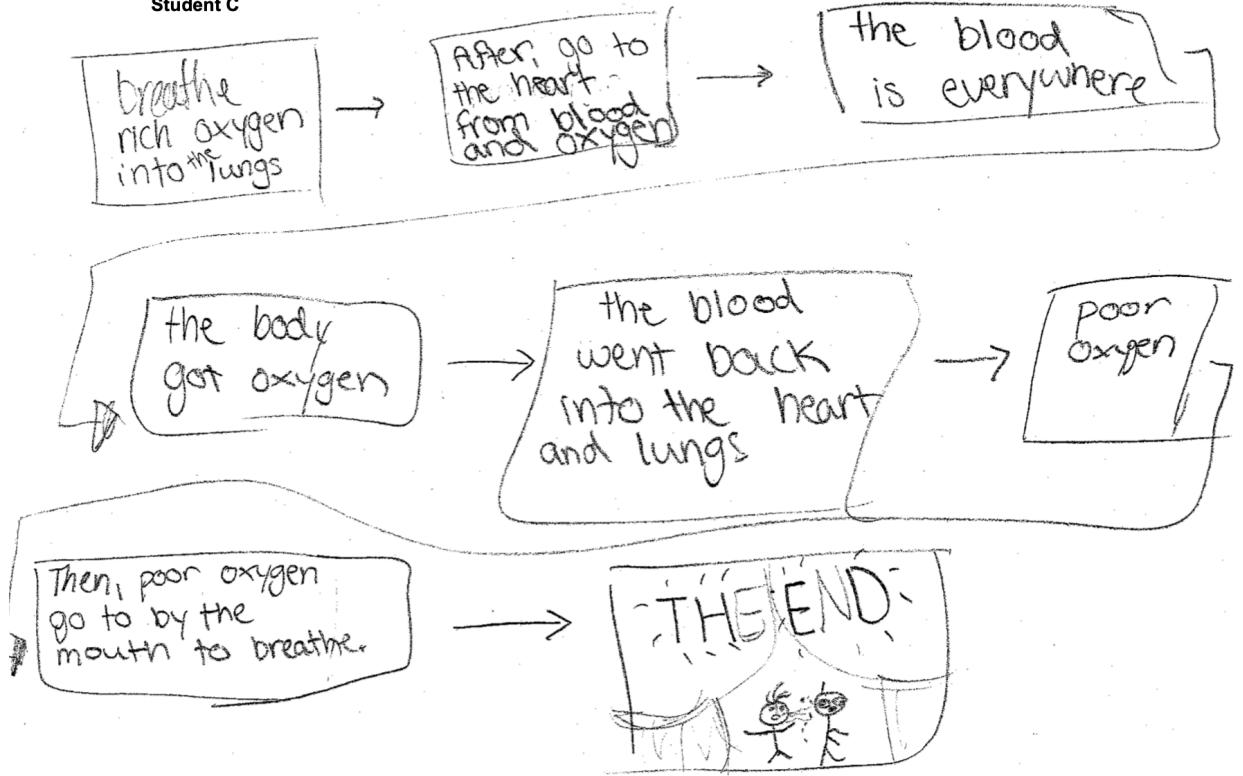 Student C
breathe
rich oxygen
into the lungs
After, go to
the heart
from blood
and oxygen
the blood
is everywhere
the body
got oxygen
the blood
went back
into the heart
and lungs
poor
oxygen
Then, poor oxygen
go to by the
mouth to breathe.
THE END